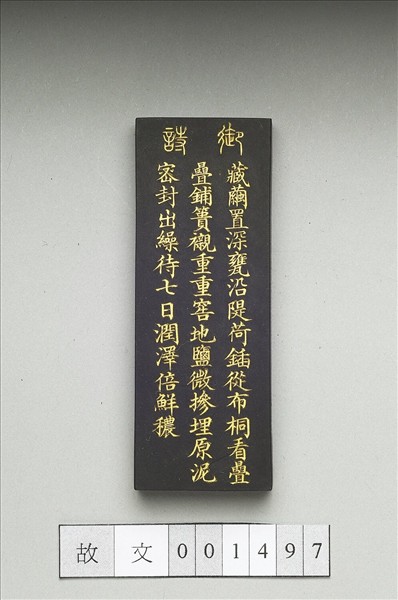 御詩
藏繭置深甕沿隄荷鍤從布桐看疊
疊鋪簀襯重重窖地鹽微摻埋原泥
密封出繰待七日潤澤倍鮮穠
故文001497